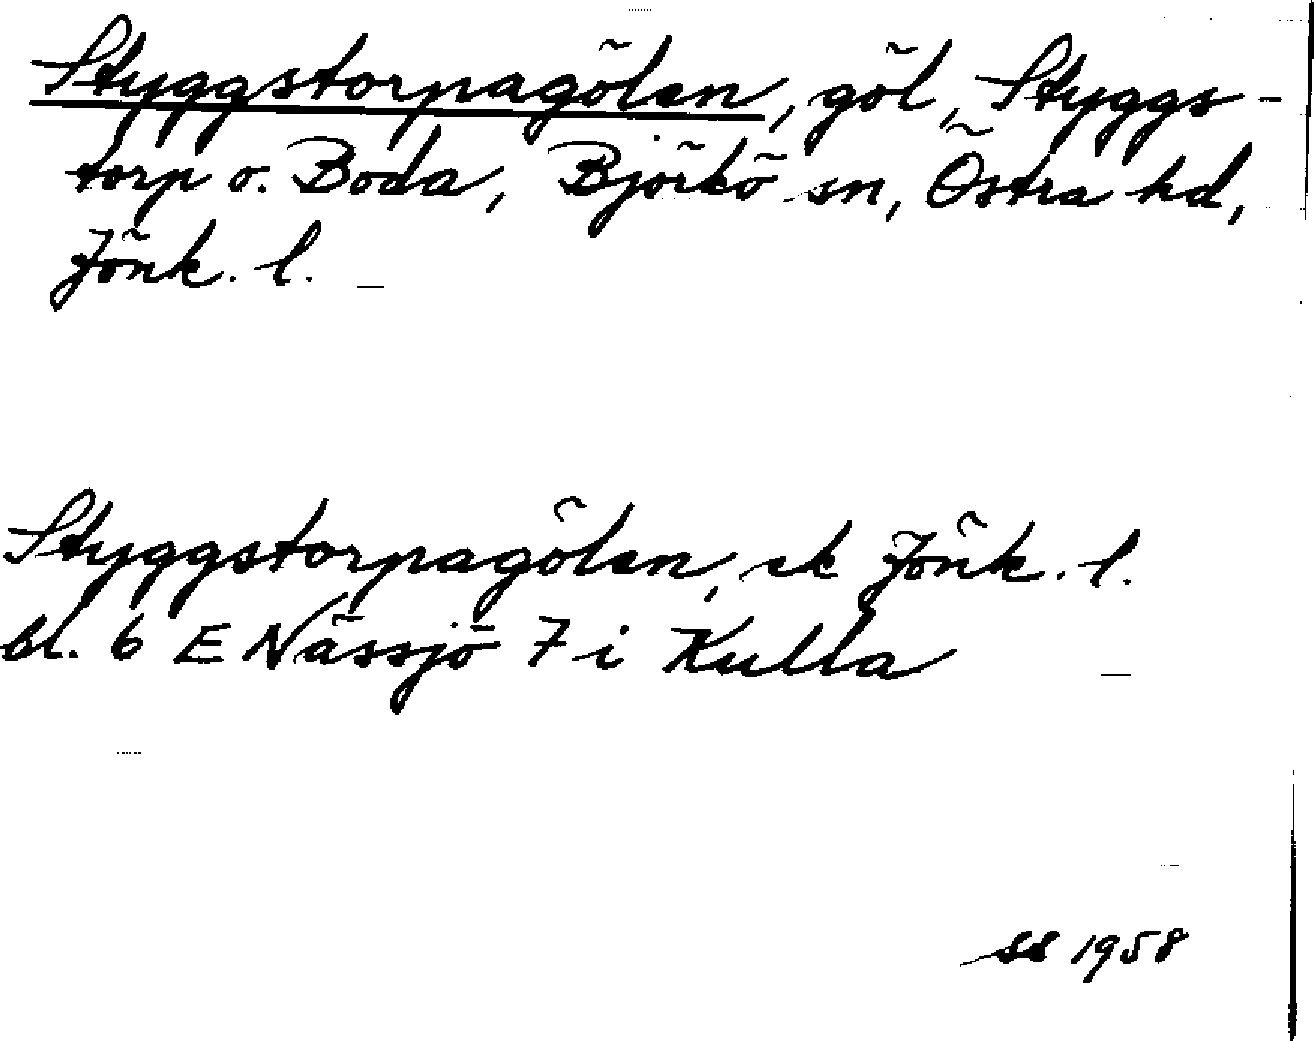 Styggstorpagölen, göl, Styggs-
torp o. Boda, Björkö sn, Östra hd,
Jönk. l.
Styggstorpagölen, ek Jönk. l.
bl. 6 E Nässjö 7 i Kulla
SS 1958